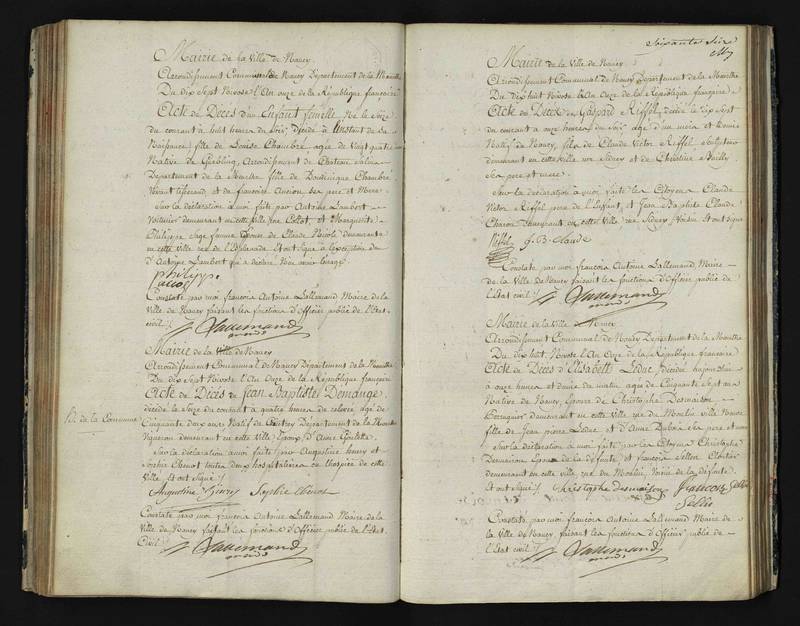 Mairie de la Ville de Nancy
Arrondissement Communal de Nancy Département de la Meurthe
Du dix Sept Nivose l'An onze de la République française
Acte de Décès d'un Enfant femelle Né le Seize
du courant à huit heures du soir, décédé à l'instant de sa
Naissance, fille de Louise Chambré agée de Vingt quatre ans
Native de Gerbling, Arrondissement de Chateau Salins
Département de la Meurthe fille de Dominique Chambré
vivant tisserand, et de françoise Ancion ses pere et Mere
Sur la déclaration à moi faite par Antoine Lambert
Voiturier demeurant en cette ville rue Callot, et Marguerite
Philippe Sage femme Epouse de Claude Nicole demeurante
en cette ville rue de l'Esplanade Et ont signé à l'exception du
d'Antoine Lambert qui a déclaré
philipp
Constaté par moi françois Antoine Lallemand Maire de la
Ville de Nancy faisant les fonctions d'Officier public de l'Etat
civil /.
Lallemand
Mairie de la Ville de Nancy
Arrondissement Communal de Nancy Département de la Meurthe
Du dix Sept Nivose l'An Onze de la République française
Acte de Décès de Jean Baptiste Demange
décédé le Seize du courant à quatre heures de relevée, agé de
Cinquante deux ans Natif de Département de la Meurthe
Vigneron demeurant en cette Ville Epoux d'Anne
B. de la Commune
Sur la déclaration à moi faite par Augustine henry et
Sophie Chenot toutes deux hospitalieres en l'hospice de cette
Ville, Et ont Signé /.
Augustine henry Sophie Chenot
Constaté par moi françois Antoine Lallemand Maire de la
Ville de Nancy faisant les fonctions d'Officier public de l'Etat
Civil /.
Lallemand
Soixante Seize
Mairie de la Ville de Nancy
Arrondissement Communal de Nancy Département de la Meurthe
Du dix huit Nivose l'An Onze de la République française
Acte de Décès de Gaspard Riffel, décédé le dix Sept
du courant à onze heures du Soir agé d'un mois et demi
Natif de Nancy, fils de Claude Victor Riffel Sculpteur
demeurant en cette Ville rue Sidney et de Christine Bailly
Ses pere et mere.
Sur la déclaration à moi faite les Citoyens Claude
Victor Riffel pere de l'Enfant, et Jean Baptiste Claude
Charon demeurant en cette Ville rue Sidney Voisin Et ont signé
Riffel J. B. Claude
Constaté par moi françois Antoine Lallemand Maire
de la Ville de Nancy faisant les fonctions d'Officier public de
l'Etat civil /.
Lallemand
Mairie de la Ville de Nancy
Arrondissement Communal de Nancy Département de la Meurthe
Du dix huit Nivose l'An Onze de la République française
Acte de Décès d'Elisabeth Leduc, décédée
à onze heures et demie du matin agée de Cinquante Sept ans
Native de Nancy, Epouse de Christophe Desmaison
Perruquier demeurant en cette Ville rue du Moulin ville Neuve
fille de Jean pierre Leduc et d'Anne Dubois Ses pere et mere
Sur la déclaration à moi faite par les Citoyens Christophe
Desmaison Epoux de la défunte, et françois Sellier Cloutier
demeurant en cette Ville, rue du Moulin, Voisin de la défunte.
Et ont Signé /. Christophe Desmaison francois Sellie
Sellie
Constaté par moi françois Antoine Lallemand Maire de
la Ville de Nancy, faisant les fonctions d'Officier public de
l'Etat civil /.
Lallemand